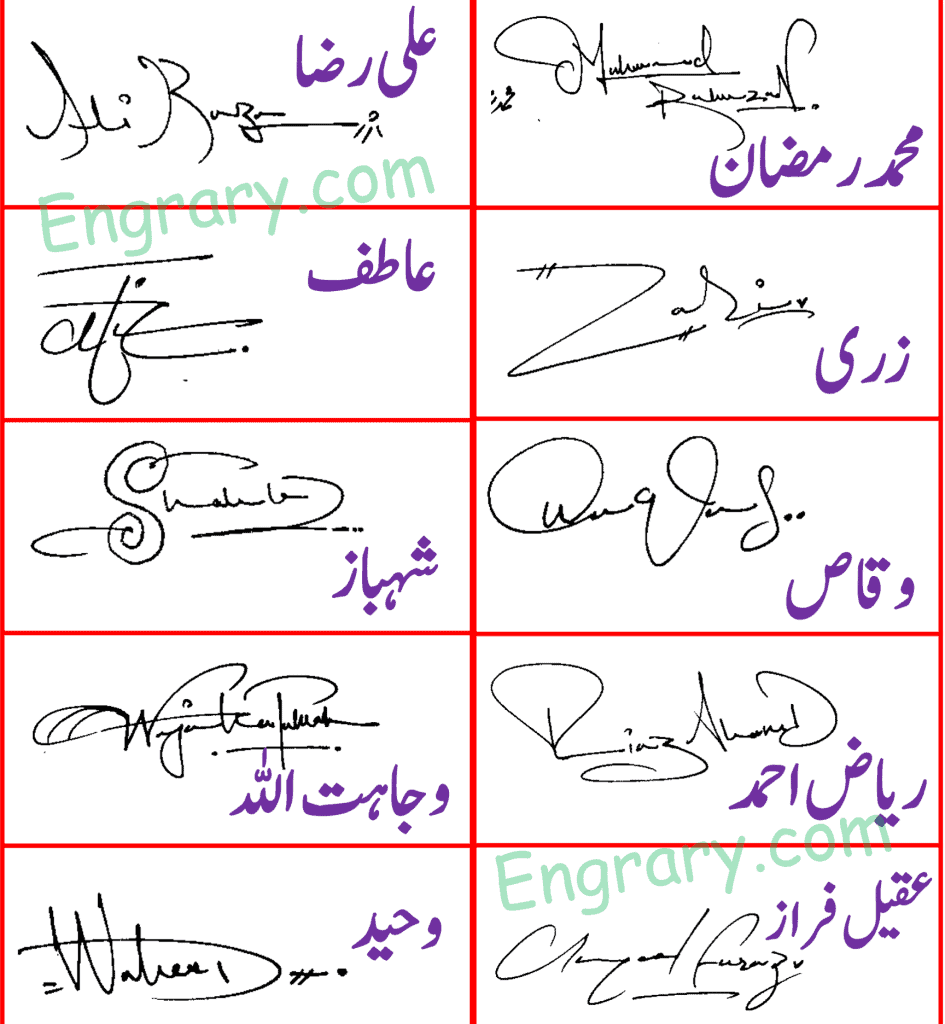 Ali Raza
علی رضا
Muhammad
Ramzan
محمد رمضان
Engrary.com
عاطف
زری
Shahbaz
شہباز
Waqas
وقاص
وجاہت اللہ
Riaz Ahmad
ریاض احمد
Engrary.com
Waheed
وحید
عقیل فراز